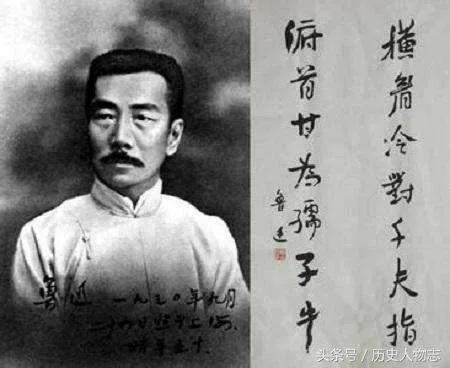 橫眉冷對千夫指
俯首甘為孺子牛
魯迅
魯迅 一九三〇年九月
二十四日照于上海,
時年五十.
头条号 / 历史人物志